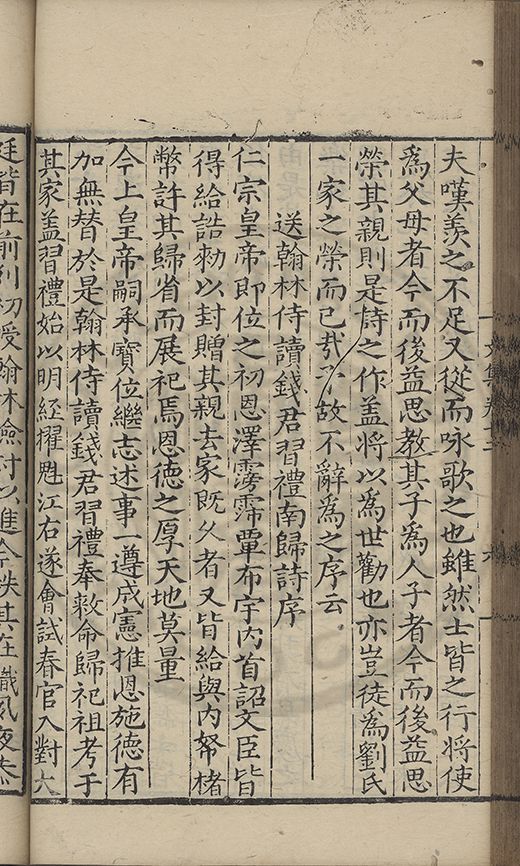 夫嘆羨之不足又從而咏歌之也雖然士皆之行將使
爲父母者今而後益思教其子爲人子者今而後益思
榮其親則是詩之作蓋將以爲世勸也亦豈徒爲劉氏
一家之榮而已哉以故不辭爲之序云
送翰林侍讀錢君習禮南歸詩序
仁宗皇帝即位之初恩澤霶霈覃布宇內首詔文臣皆
得給誥勑以封贈其親去家既久者又皆給與內帑楮
幣許其歸省而展祀焉恩德之厚天地莫量
今上皇帝嗣承寶位繼志述事一遵成憲推恩施德有
加無替於是翰林侍讀錢君習禮奉敕命歸祀祖考于
其家蓋習禮始以明經擢魁江右遂會試春官入對大
廷皆在前列初受翰林檢討以進今秩其在職夙夜恭